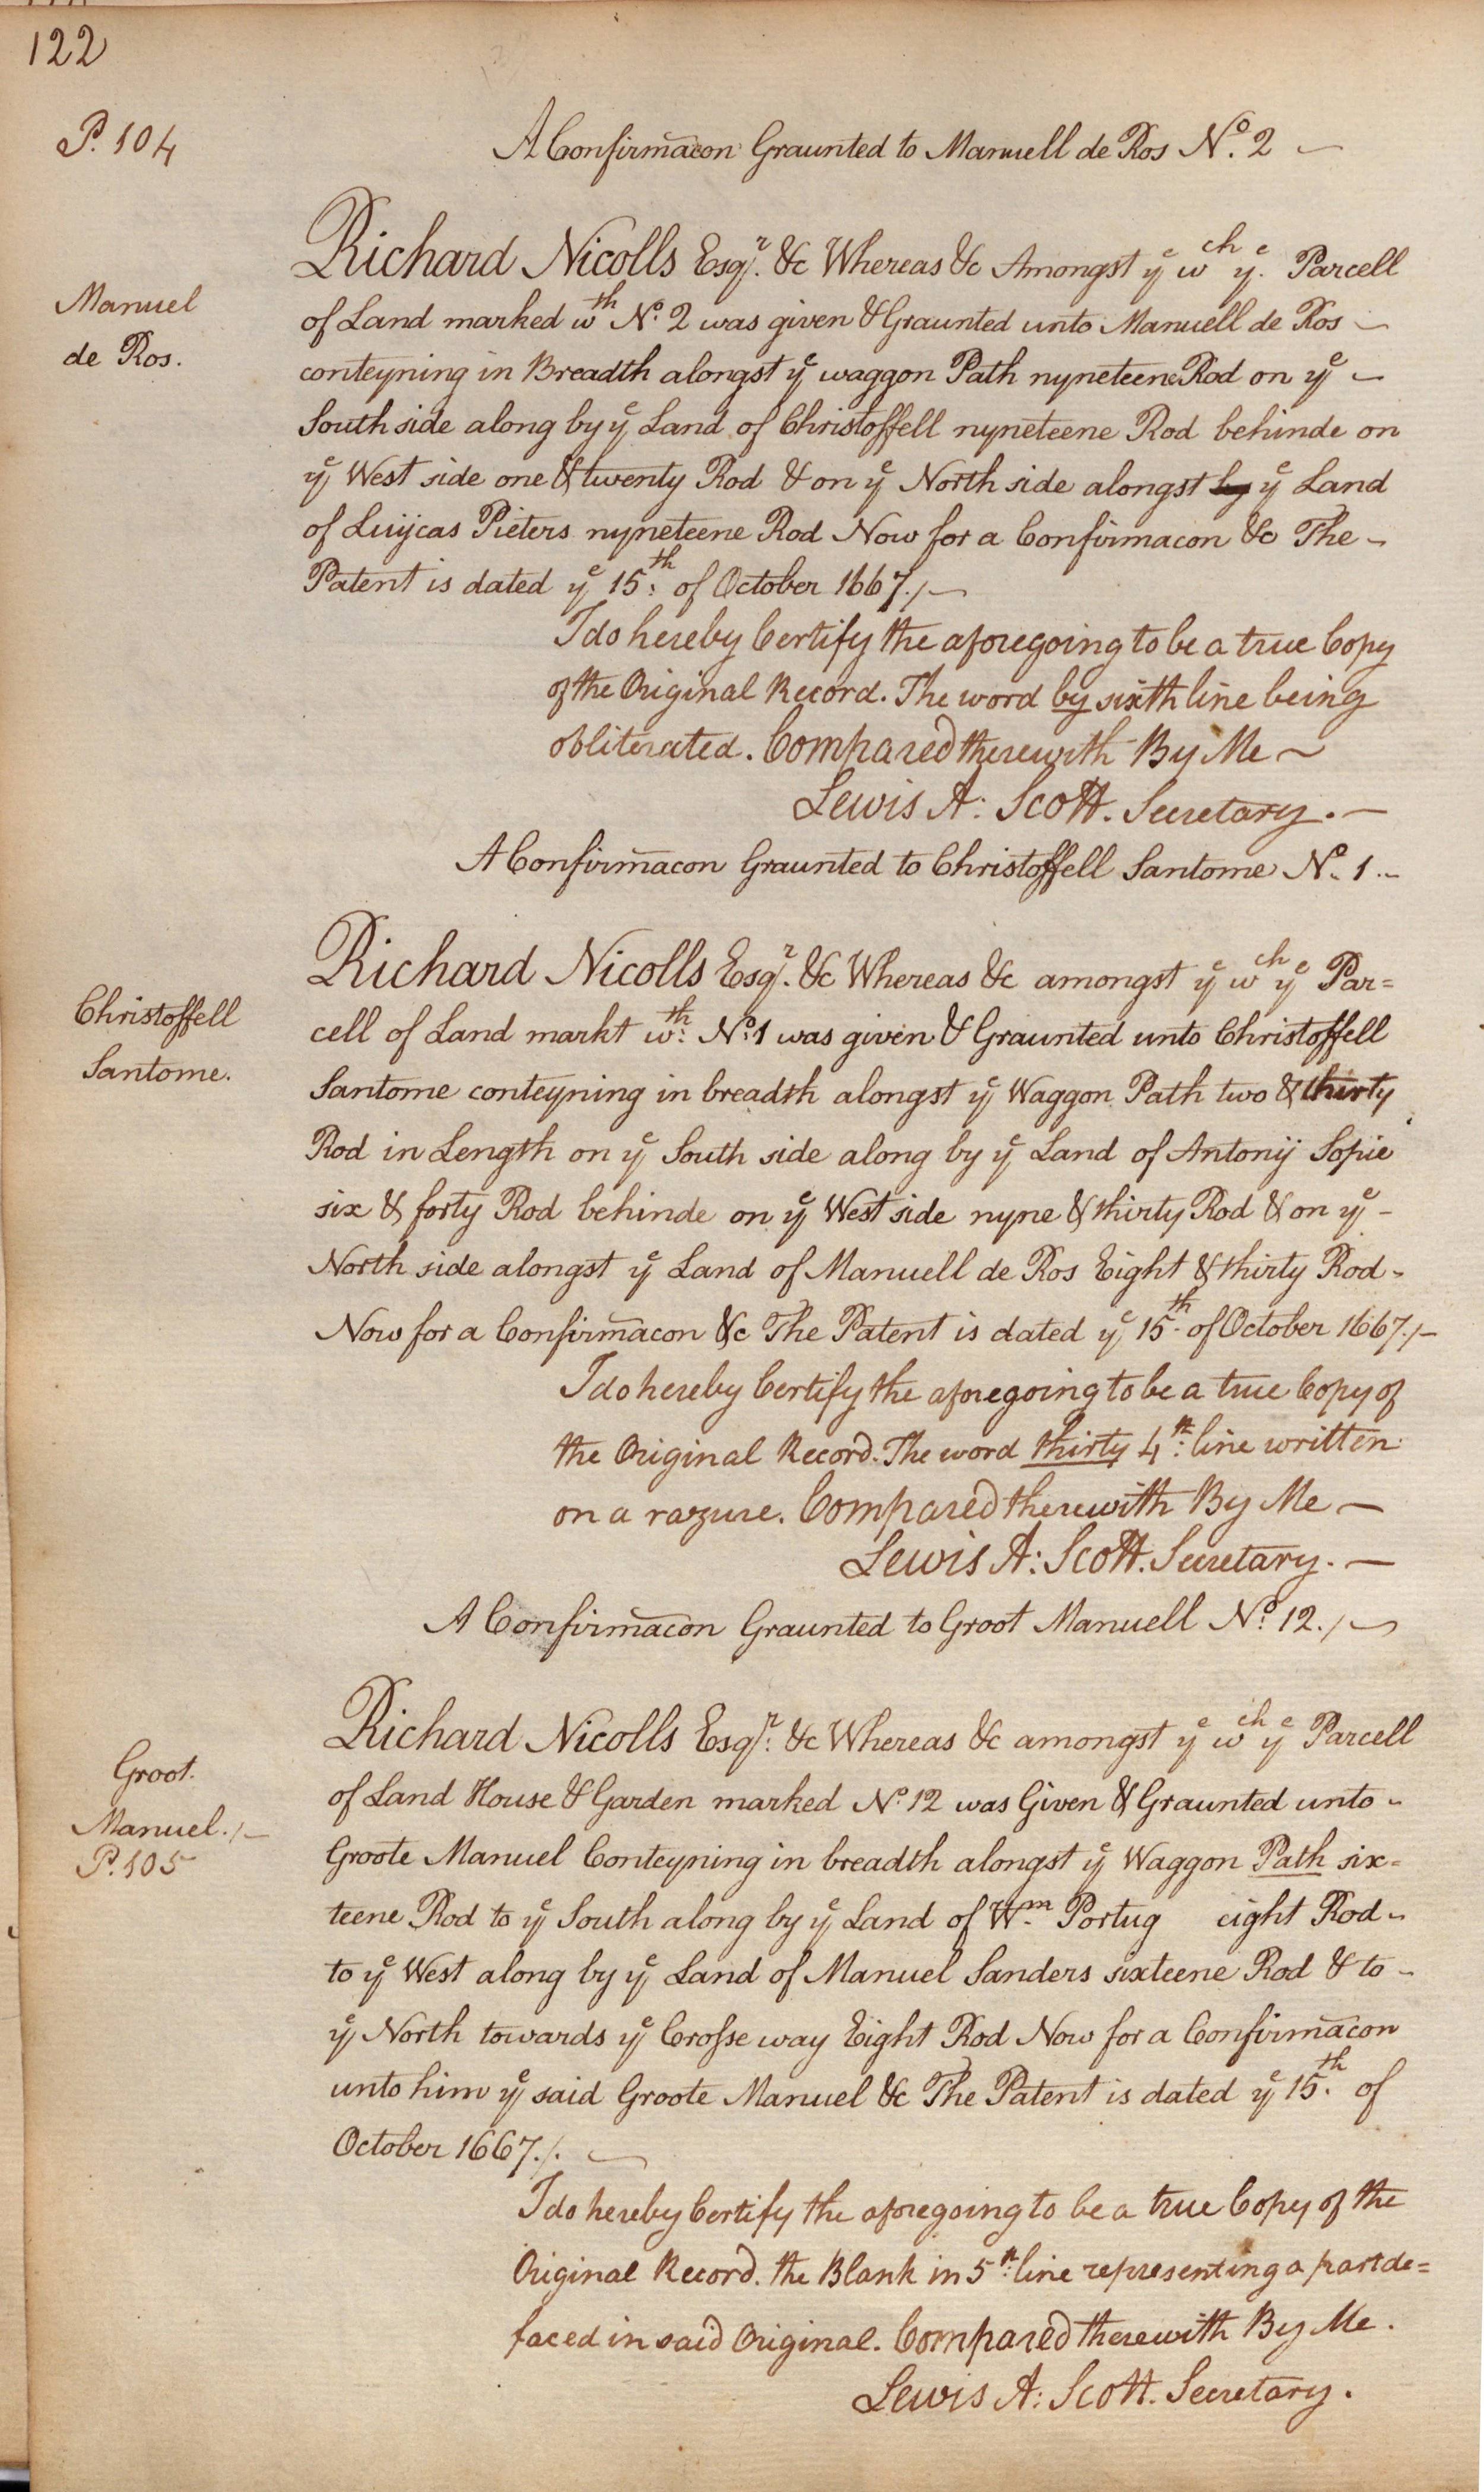 122
P. 104
A Confirmācon Graunted to Manuell de Ros Nº. 2
Manuel
de Ros.
Richard Nicolls Esqr. &c Whereas &c Amongst ye wch ye. Parcell
of Land marked wth Nº. 2 was given & Graunted unto Manuell de Ros
conteyning in Breadth alongst ye waggon Path nyneteene Rod on ye
South side along by ye Land of Christoffell nyneteene Rod behinde on
ye West side one & twenty Rod & on ye North side alongst by ye Land
of Luijcas Pieters nyneteene Rod Now for a Confirmacon &c The
Patent is dated ye 15th: of October 1667./
I do hereby Certify the aforegoing to be a true Copy
of the Original Record. The word by sixth line being
obliterated. Compared therewith By Me
Lewis A: Scott. Secretary.
A Confirmācon Graunted to Christoffell Santome Nº. 1.
Christoffell
Santome.
Richard Nicolls Esqr. &c Whereas &c amongst ye wch ye Par=
cell of Land markt wth: Nº: 1 was given & Graunted unto Christoffell
Santome conteyning in breadth alongst ye Waggon Path two & thirty
Rod in Length on ye South side along by ye Land of Antonij Sopie
six & forty Rod behinde on ye West side nyne & thirty Rod & on ye
North side alongst ye Land of Manuell de Ros Eight & thirty Rod
Now for a Confirmācon &c The Patent is dated ye 15th. of October 1667./
I do hereby Certify the aforegoing to be a true Copy of
the Original Record. The word thirty 4th: line written
on a razure. Compared therewith By Me
Lewis A: Scott. Secretary.
A Confirmācon Graunted to Groot Manuell Nº. 12./
Groot.
Manuel./
P. 105
Richard Nicolls Esqr: &c Whereas &c amongst ye wch ye Parcell
of Land House & Garden marked Nº. 12 was Given & Graunted unto
Groote Manuel Conteyning in breadth alongst ye Waggon Path six=
teene Rod to ye South along by ye Land of Wm. Portug eight Rod
to ye West along by ye Land of Manuel Sanders sixteene Rod & to
ye North towards ye Crosse way Eight Rod Now for a Confirmācon
unto him ye said Groote Manuel &c The Patent is dated ye 15th. of
October 1667./.
I do hereby Certify the aforegoing to be a true Copy of the
Original Record. the Blank in 5th: line representing a part de=
faced in said Original. Compared therewith By Me.
Lewis A: Scott. Secretary.